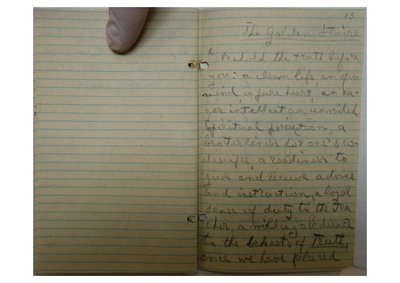 13
The Golden Stairs
" Behold the truth before
you: a clean life an open
mind a pure heart, an ea-
ger intellect an unveiled
spiritual perception, a
brotherliness for one's co-
disciple, a readiness to
give and receive advice
and instruction, a loyal
sense of duty to the Tea-
cher, a willing obedience
to the behests of Truth,
once we have placed